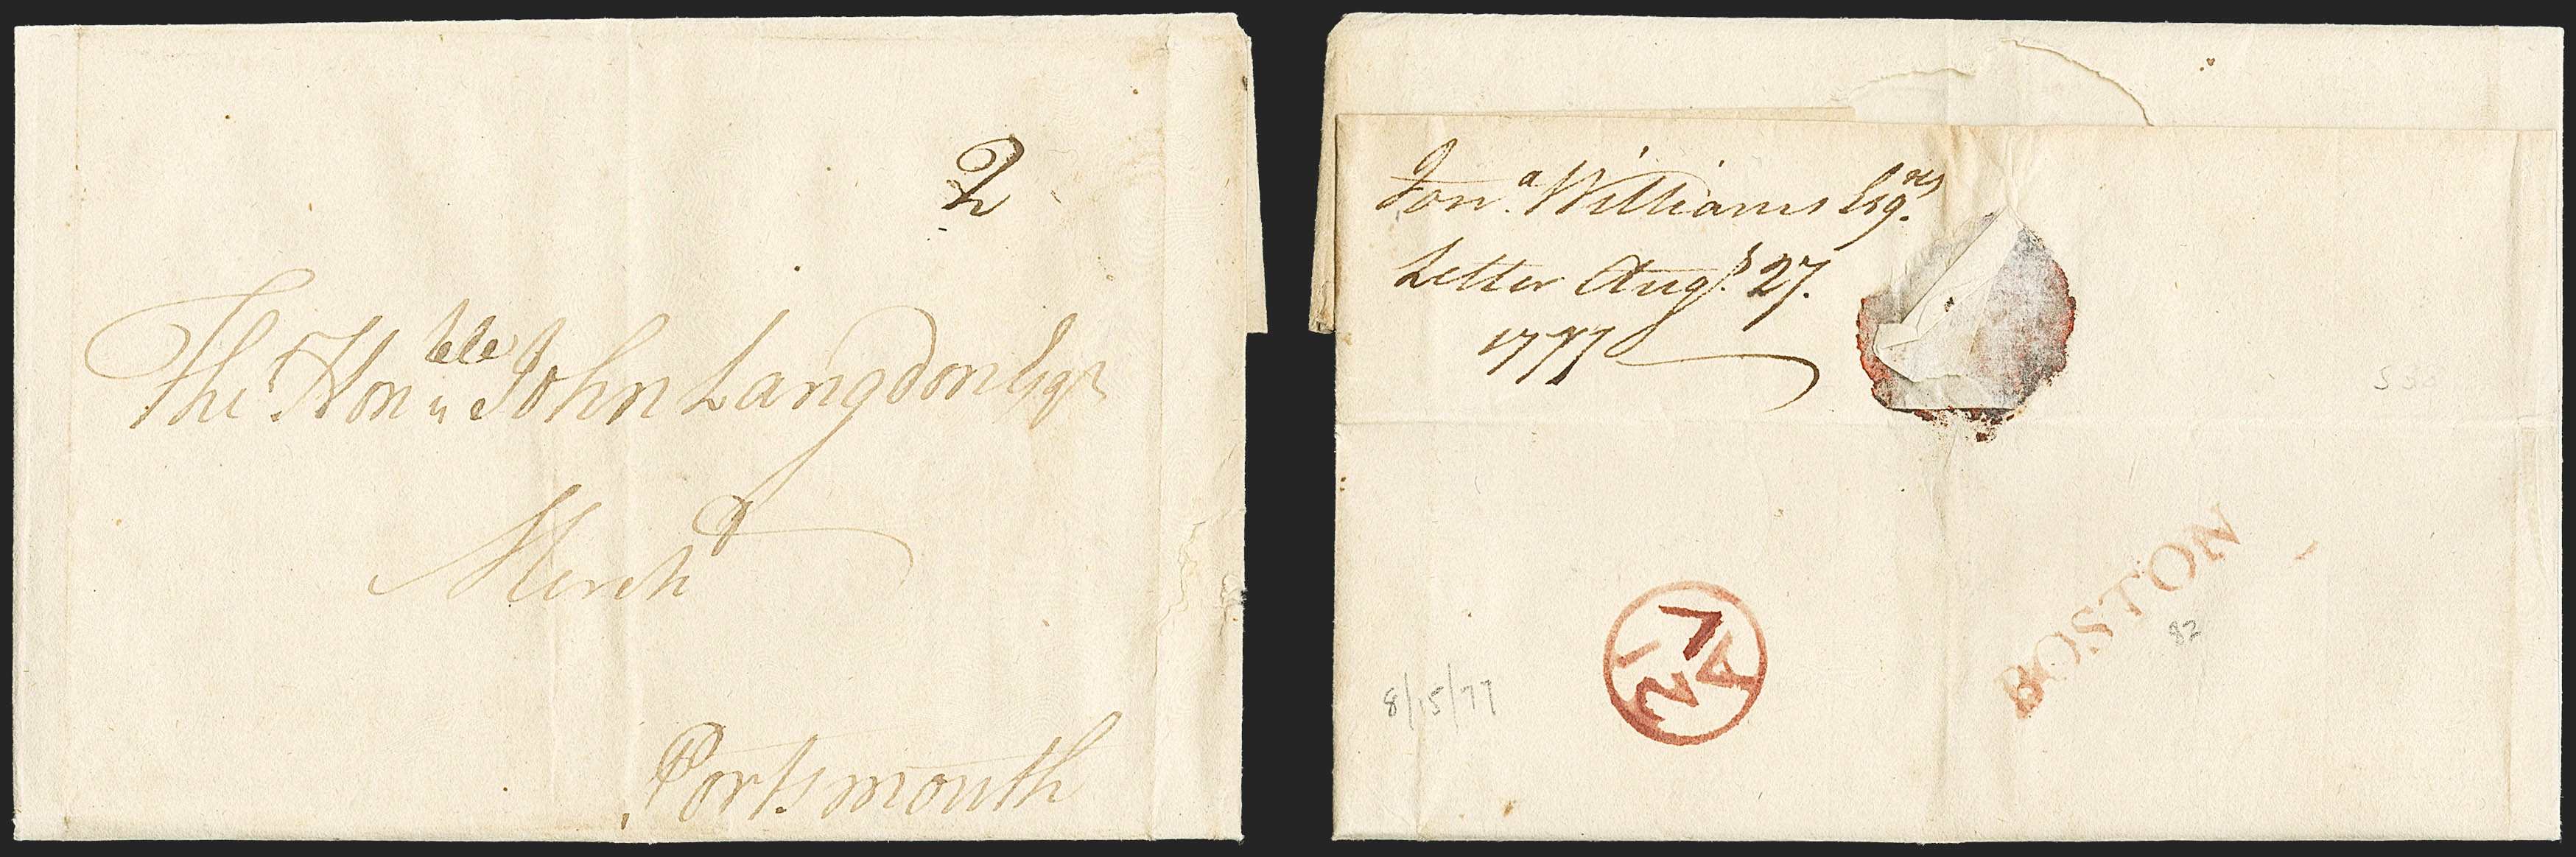 2
The Honble John Langdon Esqr
Mercht
Portsmouth
Jona. Williams Esqrs
Letter Augt. 27.
1777
BOSTON
82
8/15/77